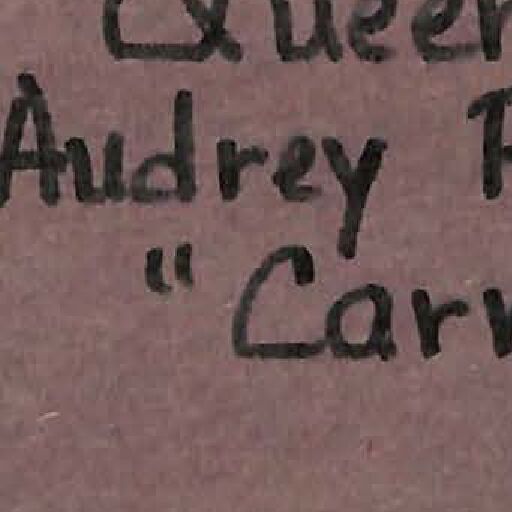 Queen
Audrey
"Car